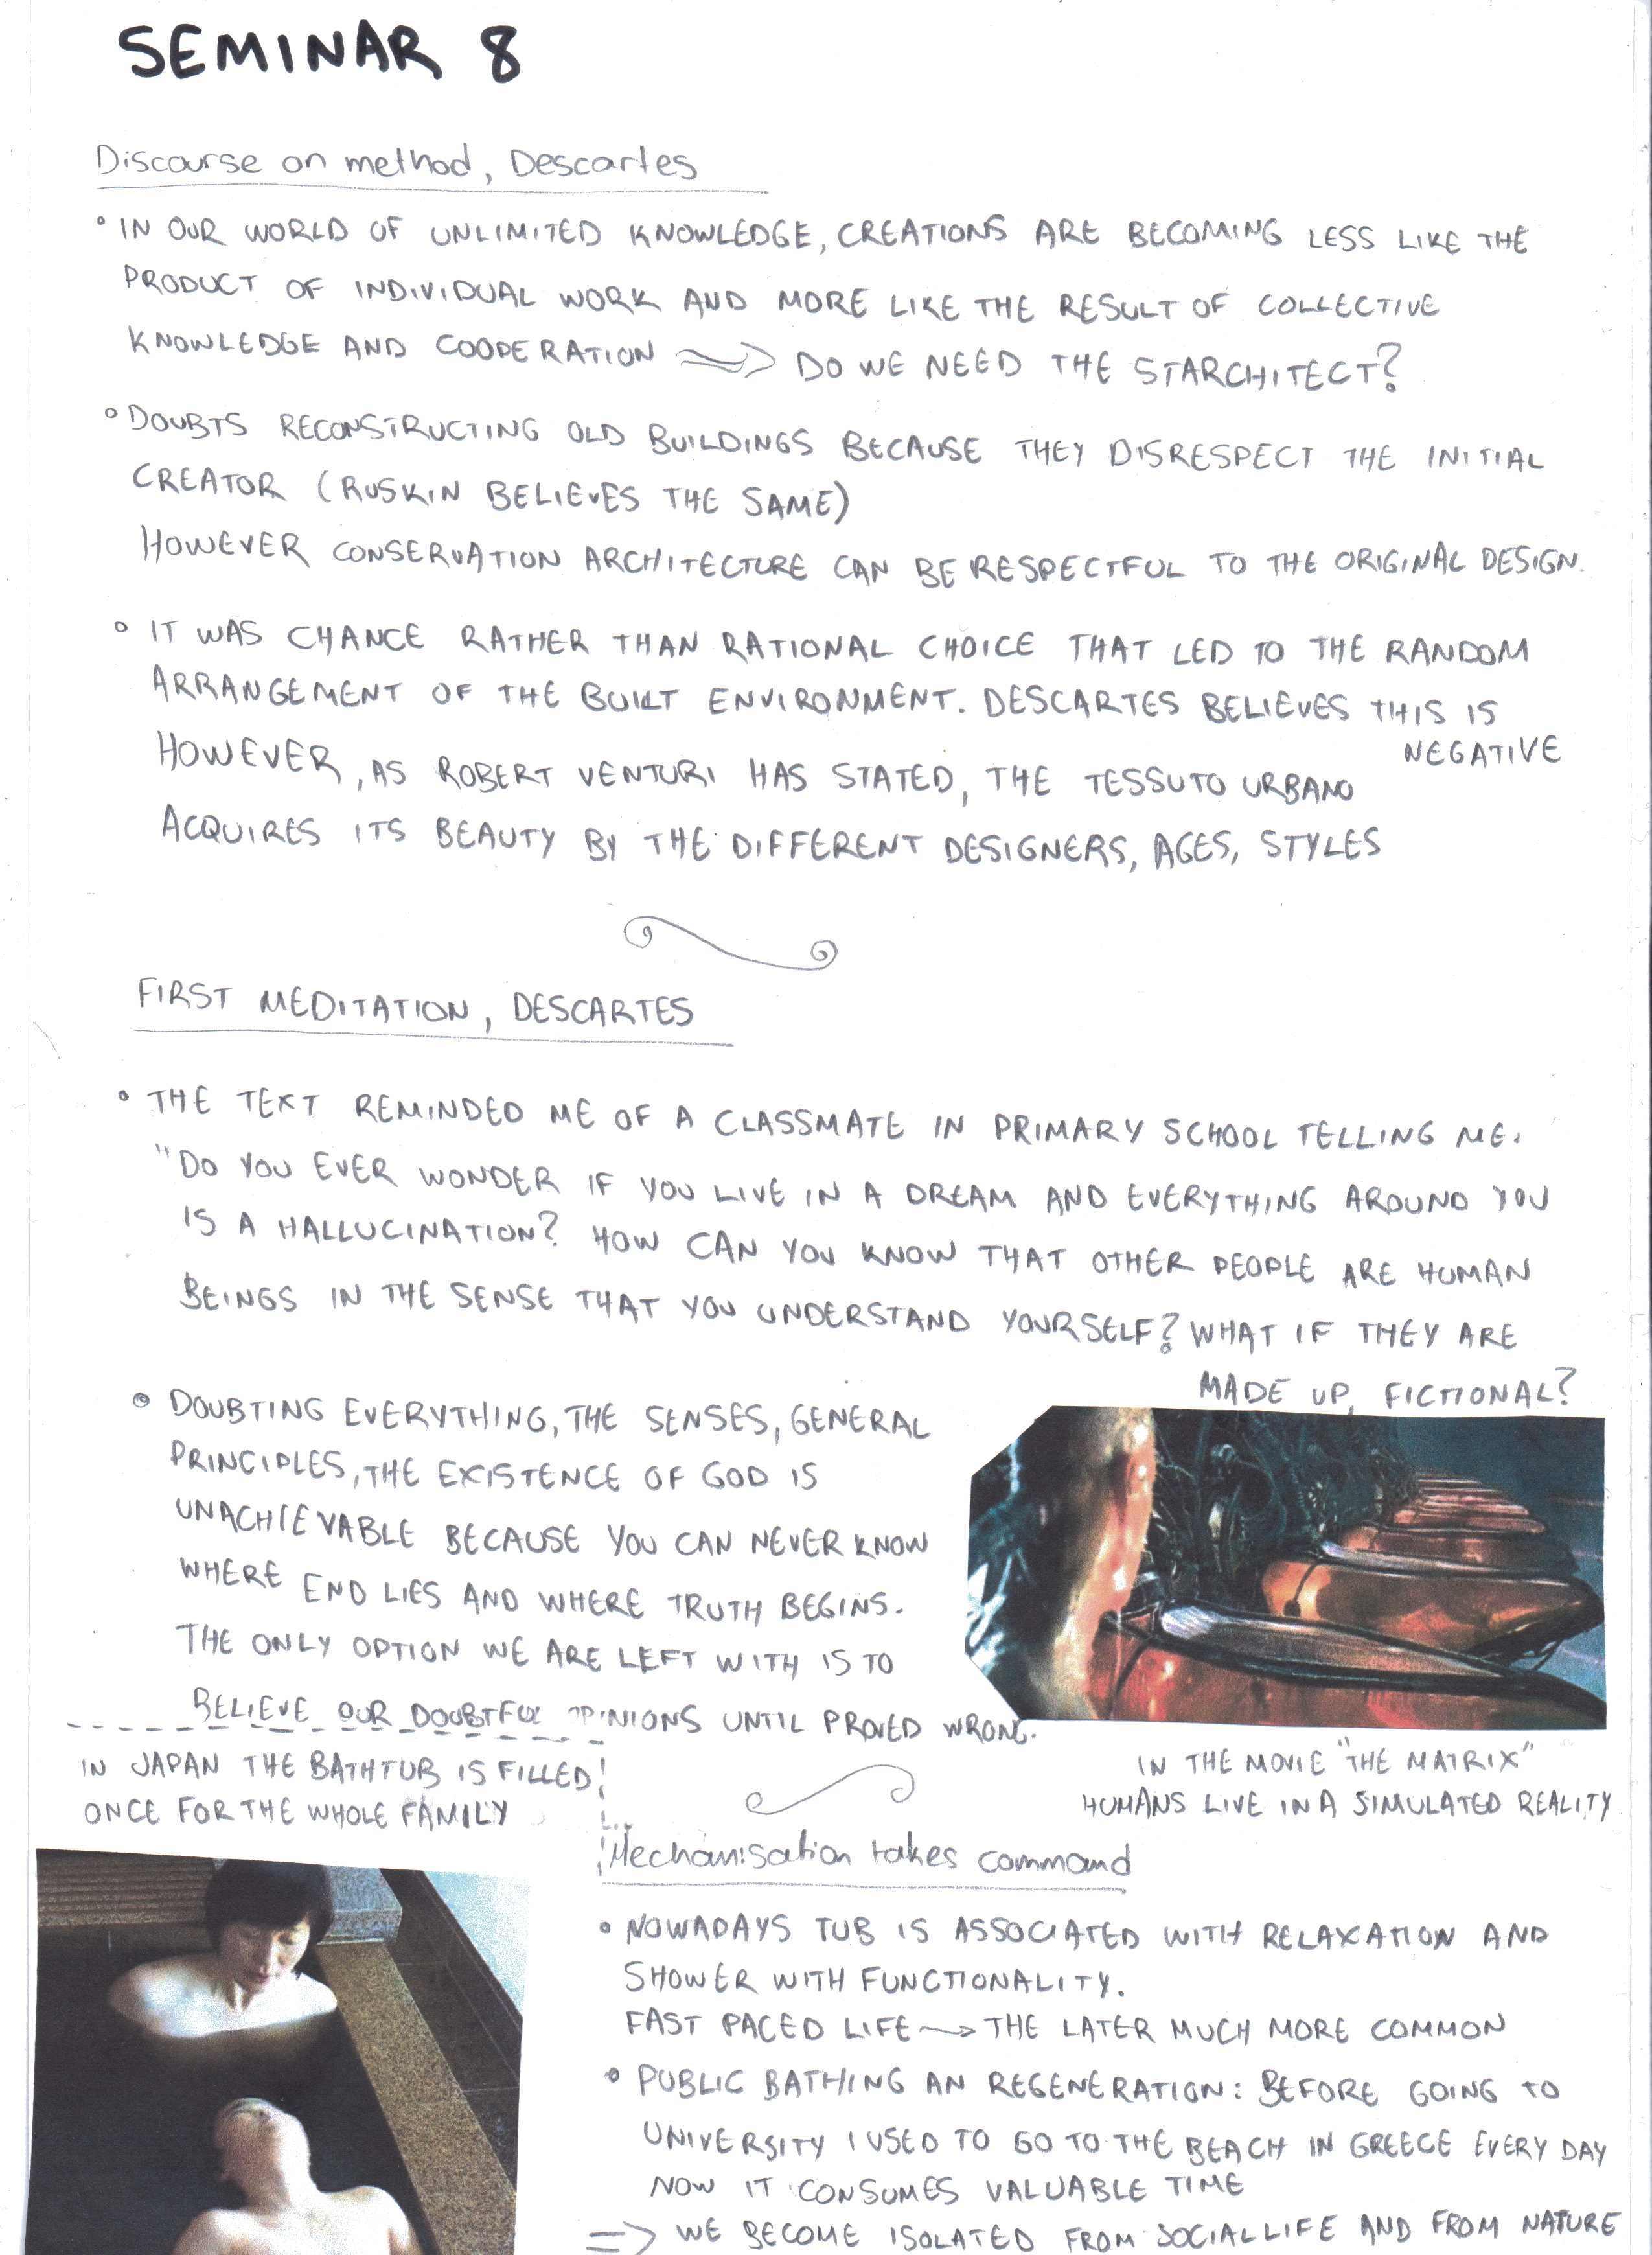 SEMINAR 8
Discourse on method, Descartes
° IN OUR WORLD OF UNLIMITED KNOWLEDGE, CREATIONS ARE BECOMING LESS LIKE THE
PRODUCT OF INDIVIDUAL WORK AND MORE LIKE THE RESULT OF COLLECTIVE
KNOWLEDGE AND COOPERATION ⇒ DO WE NEED THE STARCHITECT?
° DOUBTS RECONSTRUCTING OLD BUILDINGS BECAUSE THEY DISRESPECT THE INITIAL
CREATOR (RUSKIN BELIEVES THE SAME)
HOWEVER CONSERVATION ARCHITECTURE CAN BE RESPECTFUL TO THE ORIGINAL DESIGN.
° IT WAS CHANCE RATHER THAN RATIONAL CHOICE THAT LED TO THE RANDOM
ARRANGEMENT OF THE BUILT ENVIRONMENT. DESCARTES BELIEVES THIS IS
NEGATIVE
HOWEVER, AS ROBERT VENTURI HAS STATED, THE TESSUTO URBANO
ACQUIRES ITS BEAUTY BY THE DIFFERENT DESIGNERS, AGES, STYLES
FIRST MEDITATION, DESCARTES
° THE TEXT REMINDED ME OF A CLASSMATE IN PRIMARY SCHOOL TELLING ME.
"DO YOU EVER WONDER IF YOU LIVE IN A DREAM AND EVERYTHING AROUND YOU
IS A HALLUCINATION? HOW CAN YOU KNOW THAT OTHER PEOPLE ARE HUMAN
BEINGS IN THE SENSE THAT YOU UNDERSTAND YOURSELF? WHAT IF THEY ARE
MADE UP, FICTIONAL?
° DOUBTING EVERYTHING, THE SENSES, GENERAL
PRINCIPLES, THE EXISTENCE OF GOD IS
UNACHIEVABLE BECAUSE YOU CAN NEVER KNOW
WHERE END LIES AND WHERE TRUTH BEGINS.
THE ONLY OPTION WE ARE LEFT WITH IS TO
BELIEVE OUR DOUBTFUL OPINIONS UNTIL PROVED WRONG.
IN THE MOVIE "THE MATRIX"
HUMANS LIVE IN A SIMULATED REALITY
IN JAPAN THE BATHTUB IS FILLED
ONCE FOR THE WHOLE FAMILY
Mechanisation takes command
° NOWADAYS TUB IS ASSOCIATED WITH RELAXATION AND
SHOWER WITH FUNCTIONALITY.
FAST PACED LIFE → THE LATER MUCH MORE COMMON
° PUBLIC BATHING AN REGENERATION: BEFORE GOING TO
UNIVERSITY I USED TO GO TO THE BEACH IN GREECE EVERY DAY
NOW IT CONSUMES VALUABLE TIME
⇒ WE BECOME ISOLATED FROM SOCIAL LIFE AND FROM NATURE